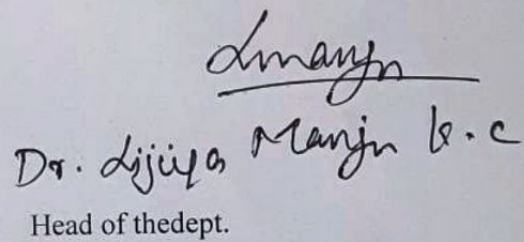 Lmanju
Dr. Lijiya Manju K.C
Head of thedept.